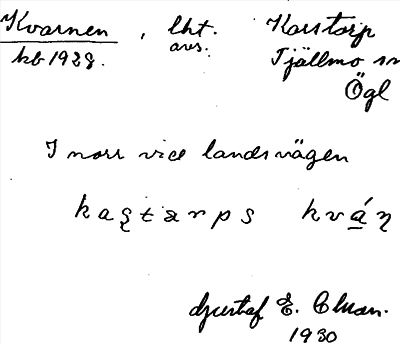 Kvarnen, lht. Karstorp
kb 1928. avs. Tjällmo sn
Ögl
I norr vid landsvägen
kaʂtarps kván
Gustaf E. Clason.
1930